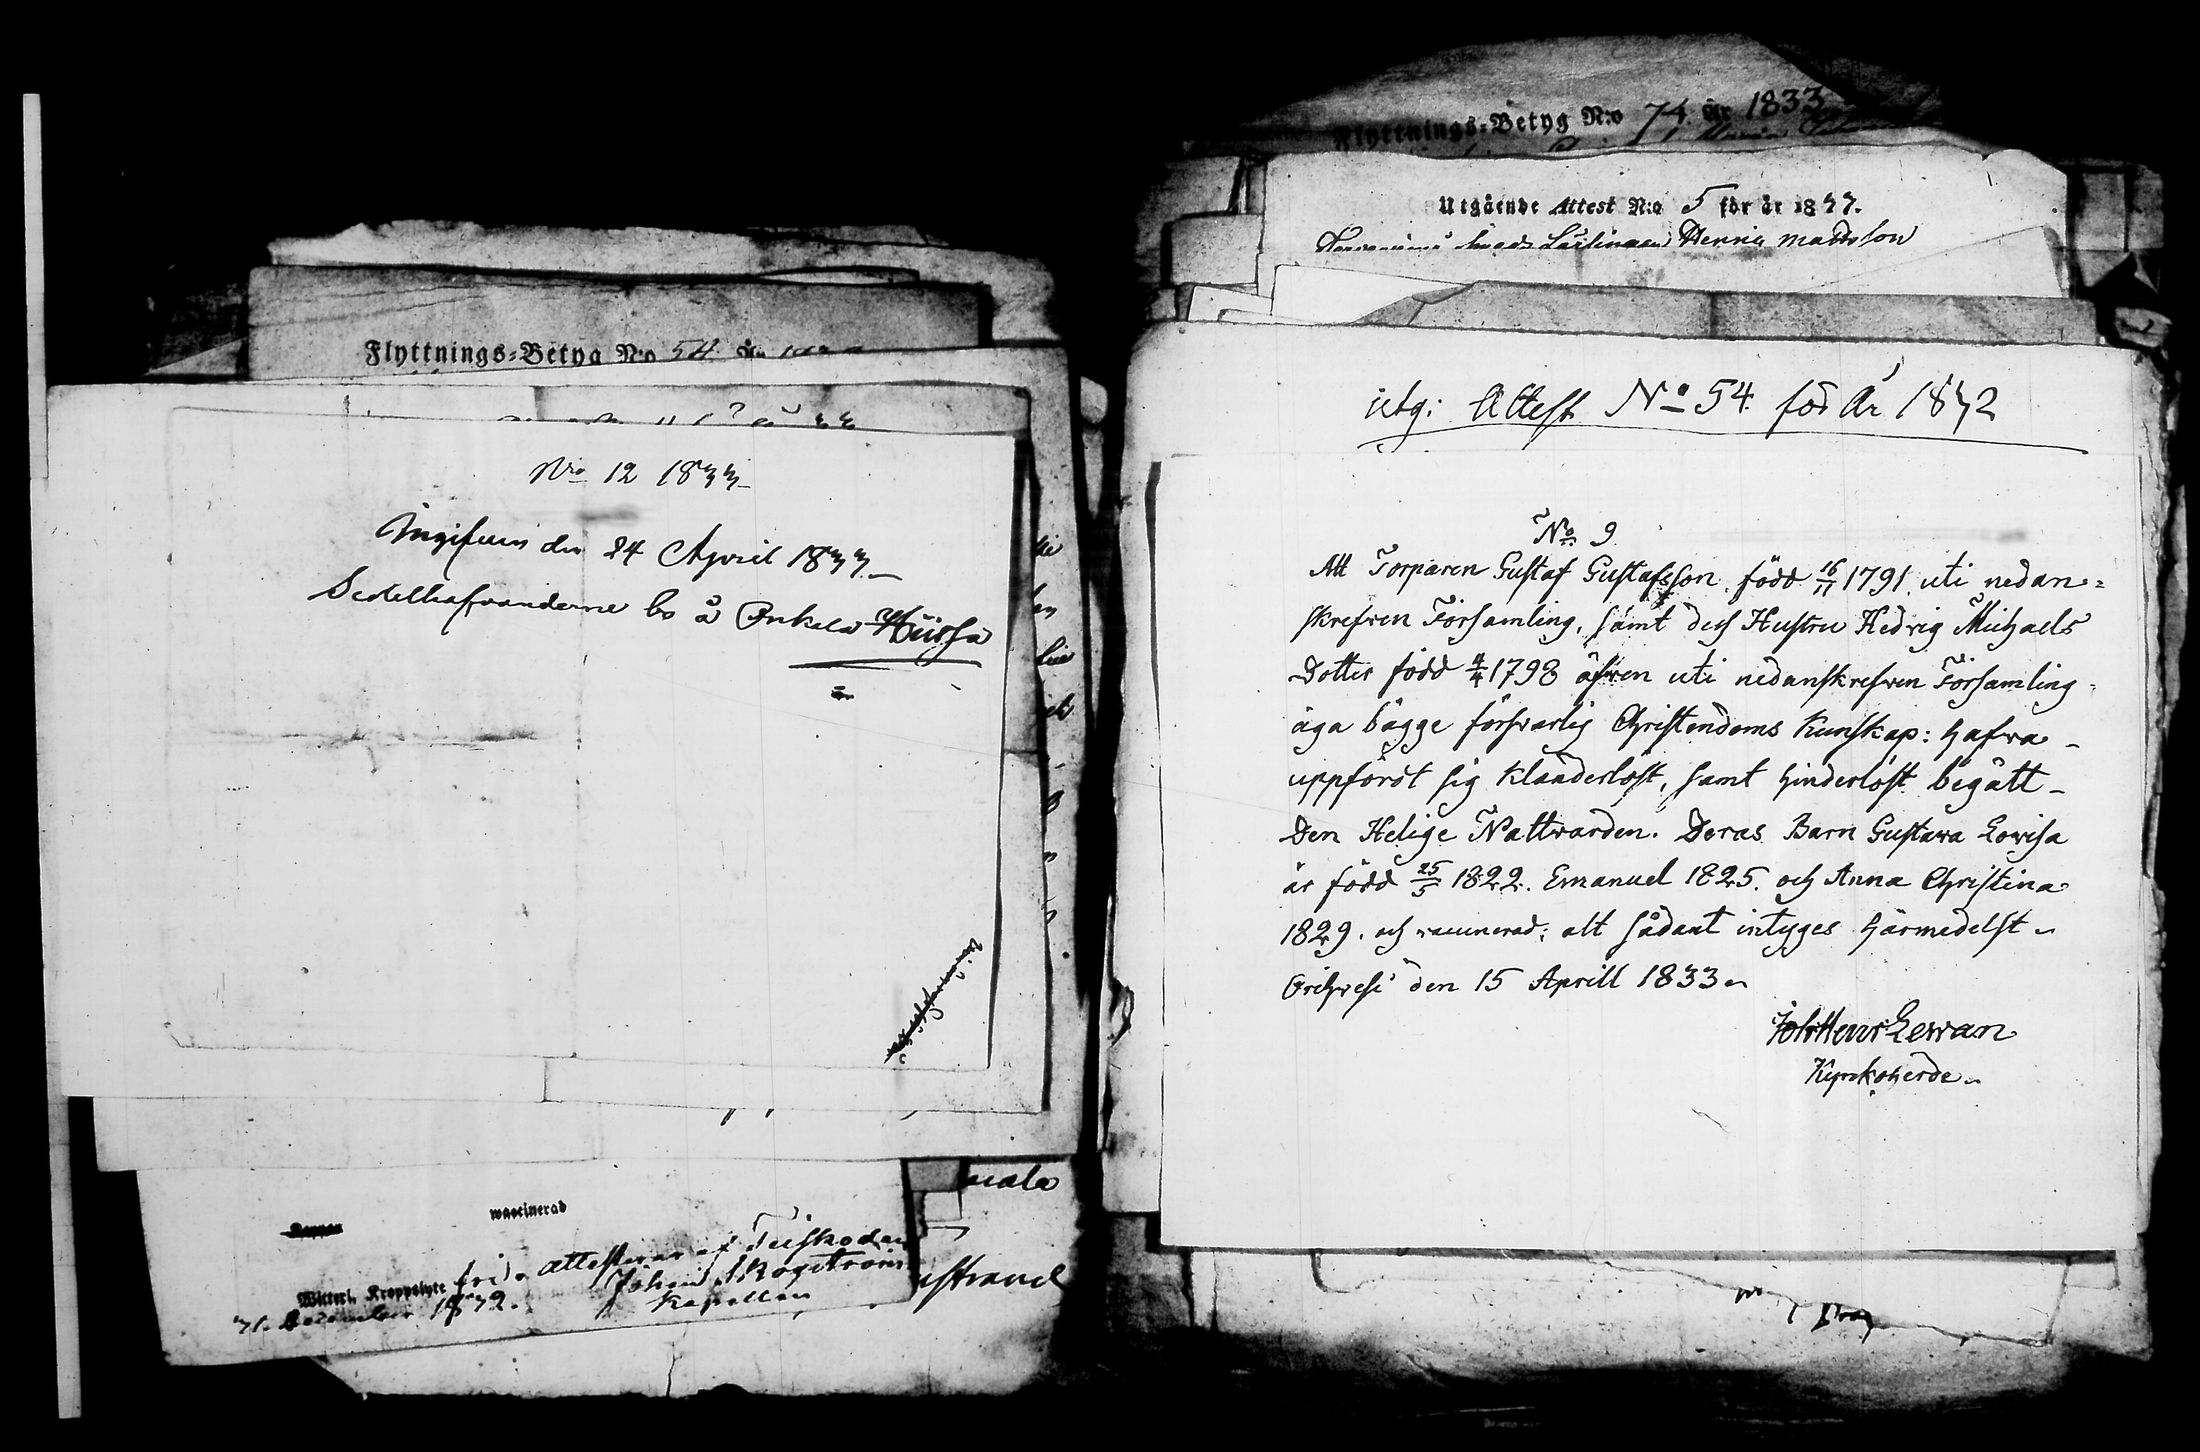 Flyttnings-Betyg N:o 54. År
Nro 12 1833
Ingifven den 24 April 1833.
Sedelhafvanderne bo å Onkala
waccinerad
Wittert. Kroppslyte fri. attesterar af Tuiskoda
31. December 1832. Johan Skogström
Kapellan
strand
Flyttnings-Betyg N:o 74. År 1833
Utgående Attest N:o 5 för år 1833.
Henric Mattsson
utg: Attest No 54. för År 1832
No 9
Att Torparen Gustaf Gustafsson född 16/11 1791. uti nedan=
skrefven Församling, samt dess Hustru Hedvig Michaels
Dotter född 4/4 1798 äfven uti nedanskrefven Församling
äga bägge försvarlig Christendoms Kunskap: hafva
uppfördt sig klanderlöst, samt hinderlöst begått
Den Helige Nattvarden. Deras Barn Gustava Lovisa
är född 25/5 1822. Emanuel 1825. och Anna Christina
1829. och vaccinerad; alt sådant intyges härmedelst
Orihvesi den 15 Aprill 1833
Joh Henr Lewan
Kyrkoherde